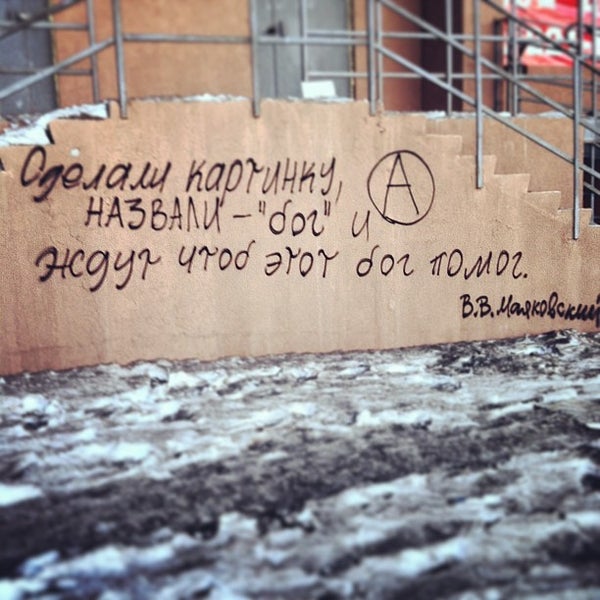 Сделали картинку,
НАЗВАЛИ – "бог" и
ждут чтоб этот бог помог.
В.В. Маяковский
А